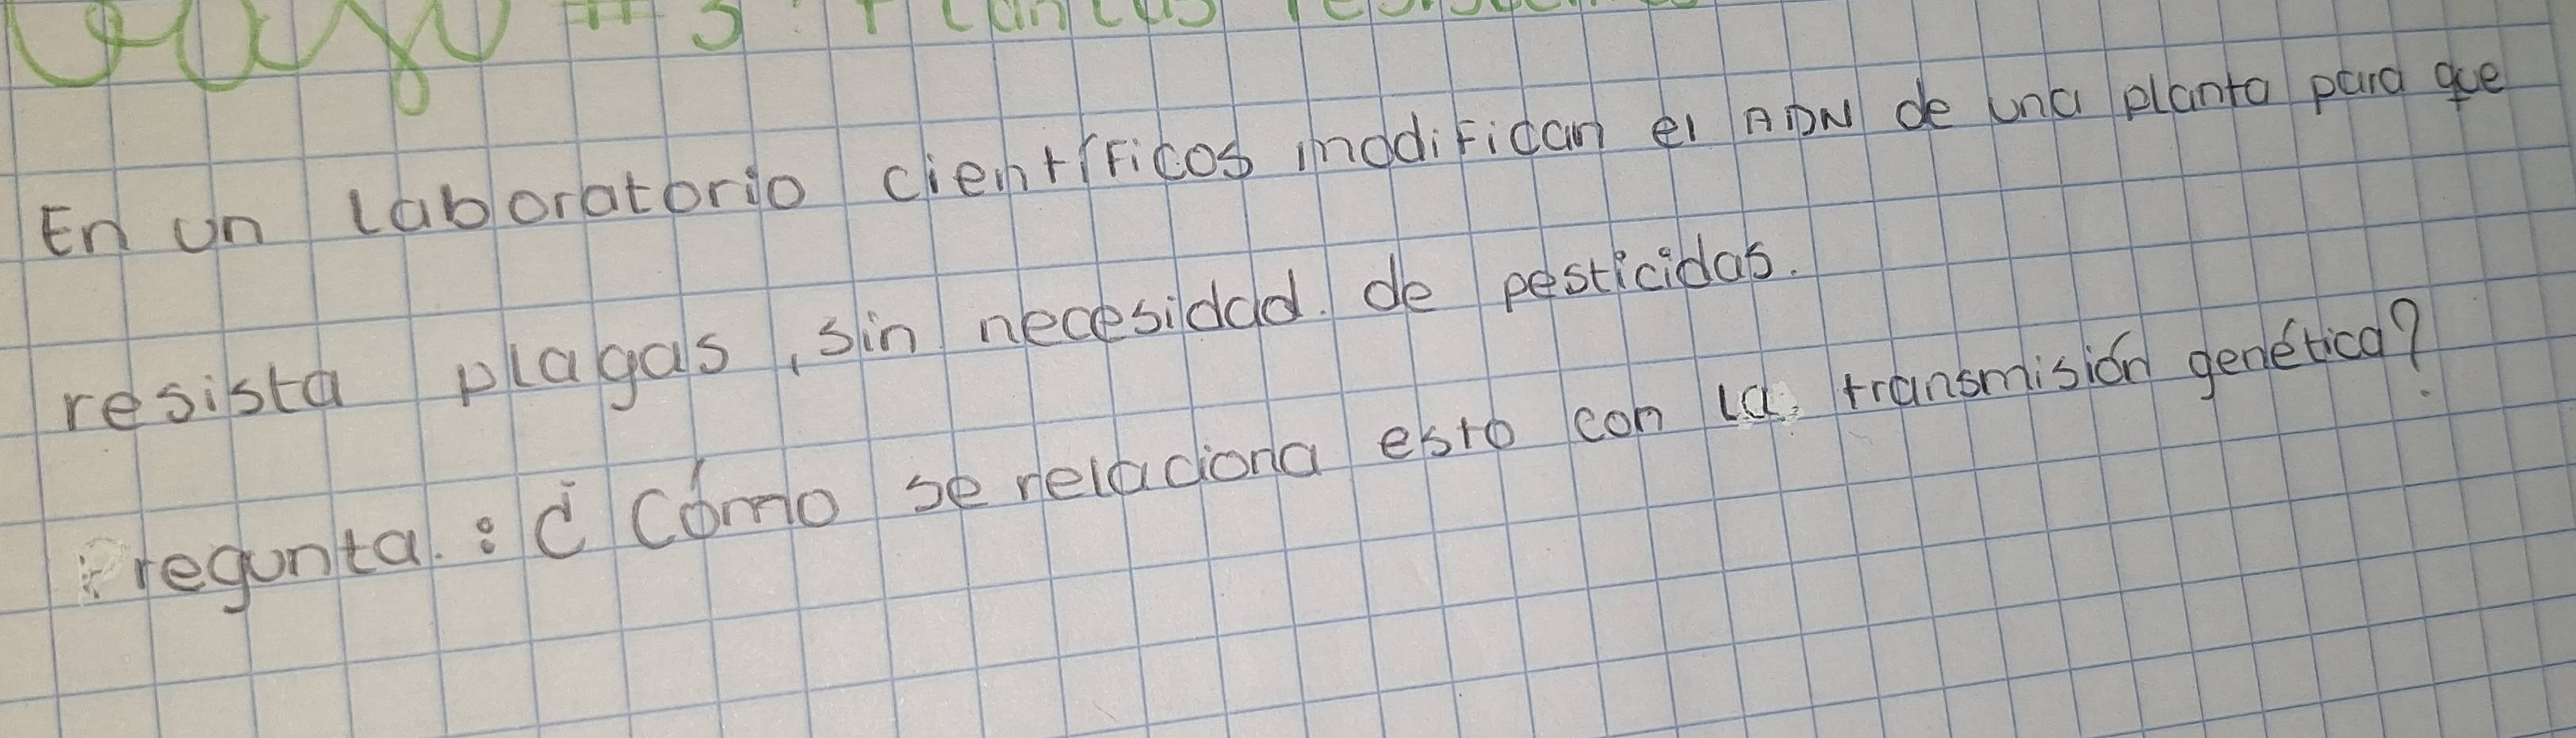 Caso #3: Plantas resistentes
En un laboratorio científicos modifican el ADN de una planta para que
resista plagas, sin necesidad. de pesticidas.
Pregunta.: ¿Cómo se relaciona esto con la transmisión genética?